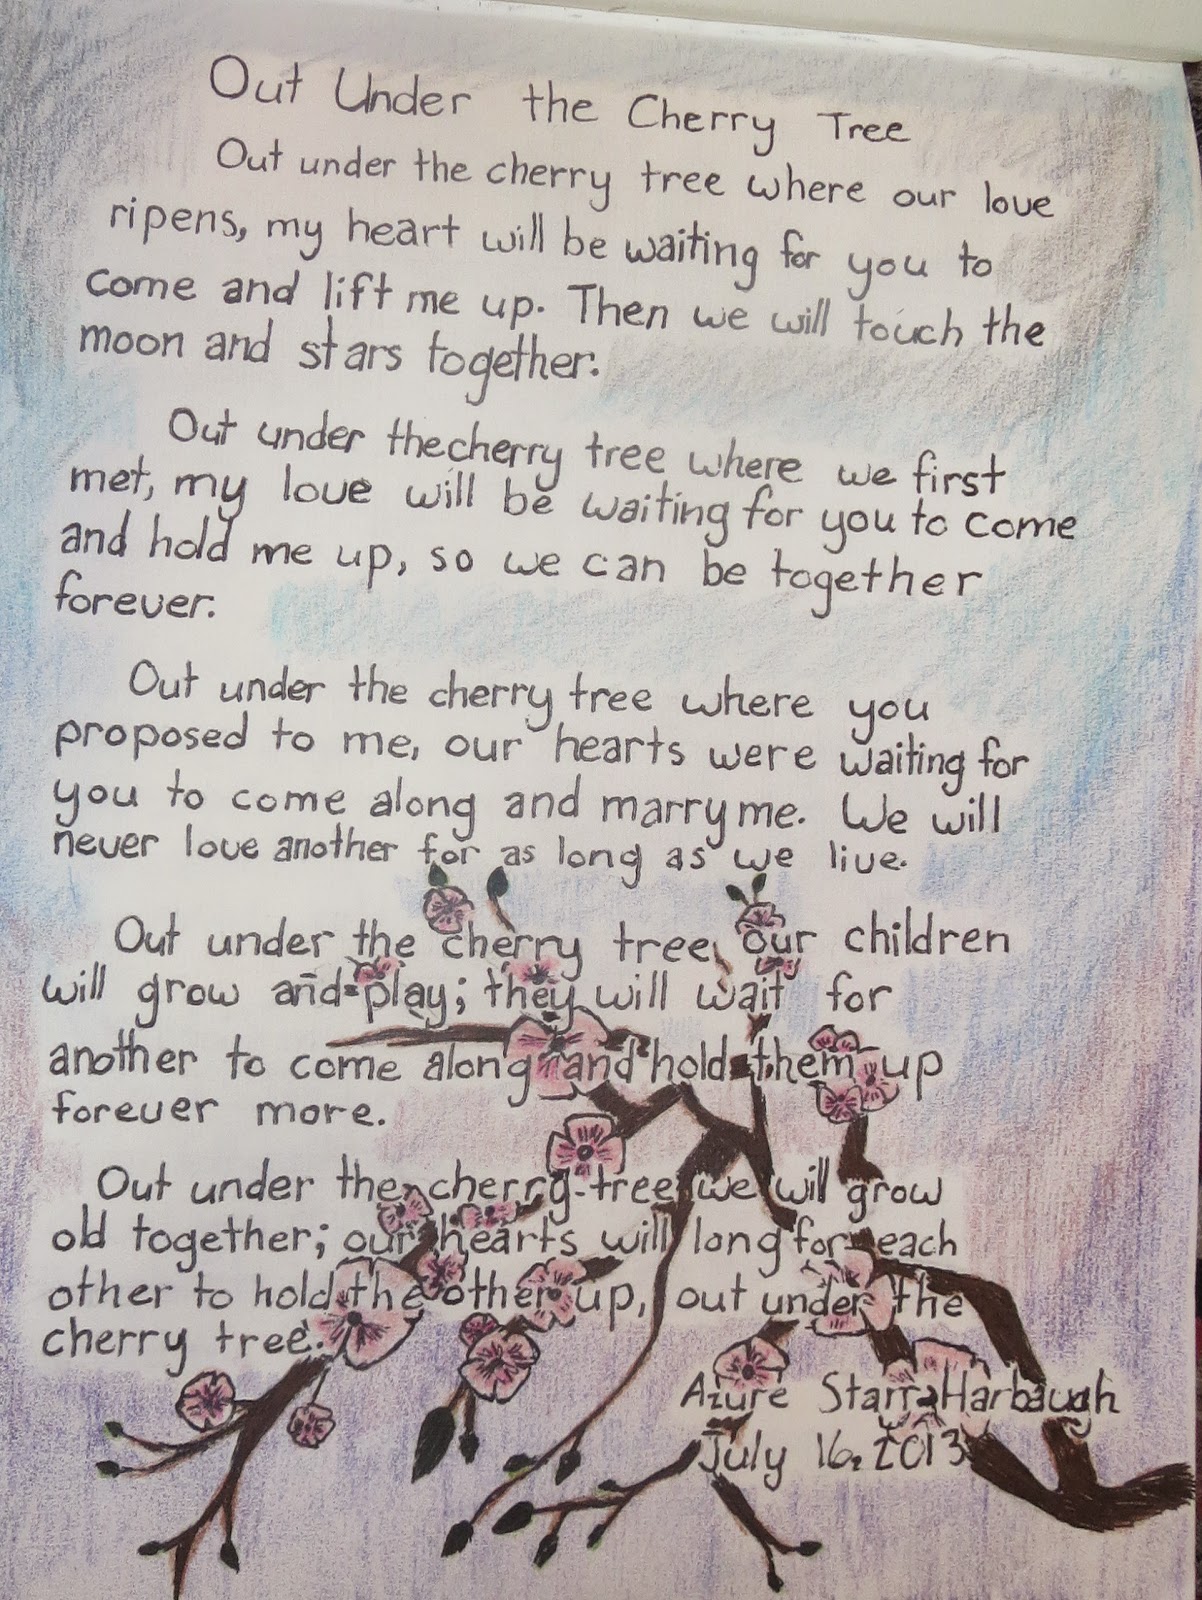 Out Under the Cherry Tree
Out under the cherry tree where our love
ripens, my heart will be waiting for you to
come and lift me up. Then we will touch the
moon and stars together.
Out under the cherry tree where we first
met, my love will be waiting for you to come
and hold me up, so we can be together
forever.
Out under the cherry tree where you
proposed to me, our hearts were waiting for
you to come along and marry me. We will
never love another for as long as we live.
Out under the cherry tree, our children
will grow and play; they will wait for
another to come along and hold them up
forever more.
Out under the cherry tree we will grow
old together; our hearts will long for each
other to hold the other up, out under the
cherry tree.
Azure Starr Harbaugh
July 16, 2013